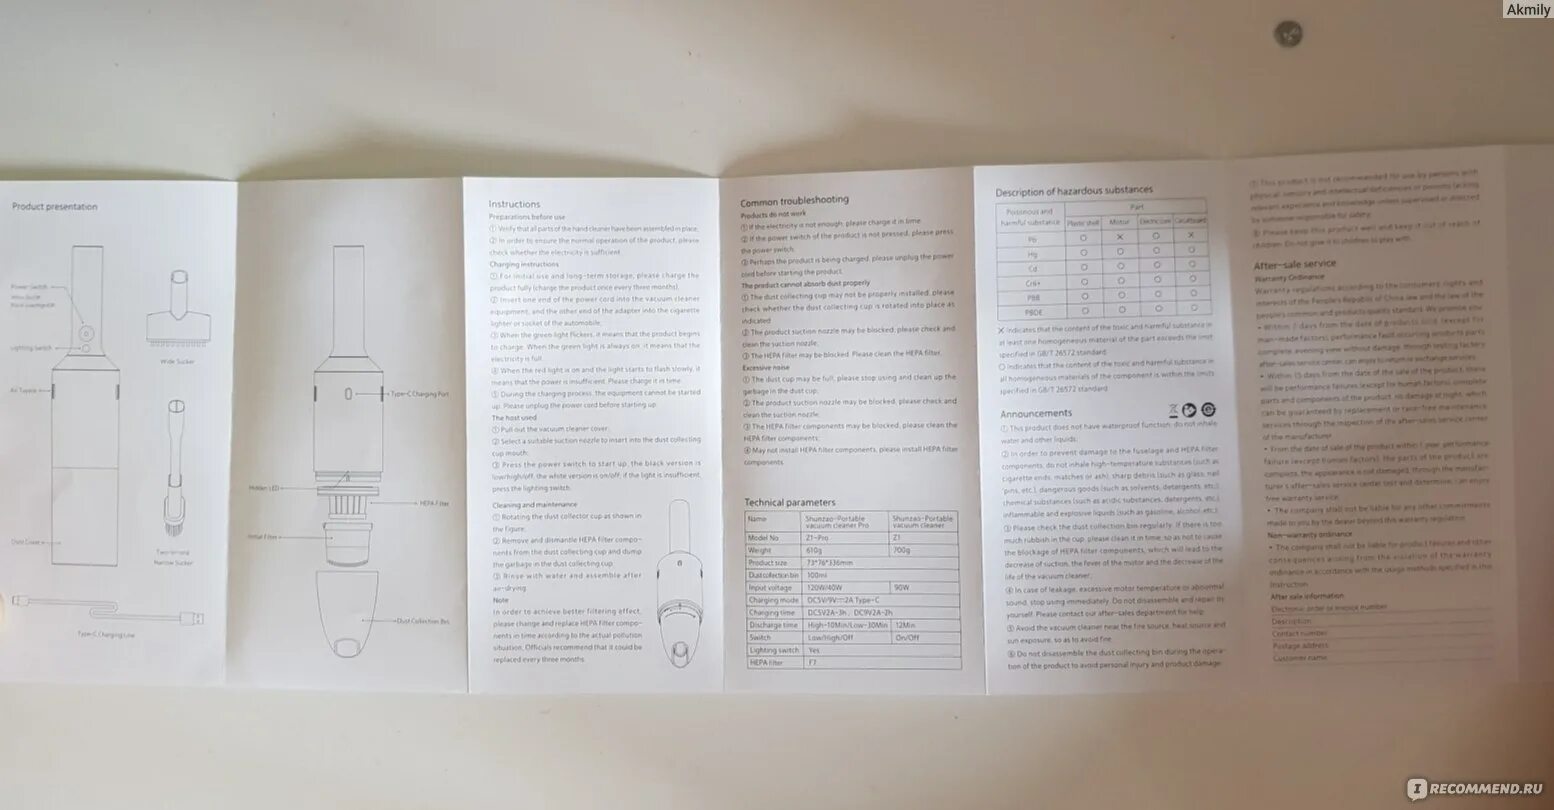 Akmily
Product presentation
Power Switch
Lighting Switch
Air Tuyere
Dust Cover
Wide Sucker
Two-in-one
Narrow Sucker
Type-C Charging Line
Type-C Charging Port
Hidden LED
HEPA Filter
Initial Filter
Dust Collection Bin
Instructions
Preparations before use
① Verify that all parts of the hand cleaner have been assembled in place.
② In order to ensure the normal operation of the product, please
check whether the electricity is sufficient.
Charging instructions
① For initial use and long-term storage, please charge the
product fully (charge the product once every three months).
② Insert one end of the power cord into the vacuum cleaner
equipment, and the other end of the adapter into the cigarette
lighter or socket of the automobile.
③ When the green light flickers, it means that the product begins
to charge. When the green light is always on, it means that the
electricity is full.
④ When the red light is on and the light starts to flash slowly, it
means that the power is insufficient. Please charge it in time.
⑤ During the charging process, the equipment cannot be started
up. Please unplug the power cord before starting up.
The host used
① Pull out the vacuum cleaner cover.
② Select a suitable suction nozzle to insert into the dust collecting
cup mouth.
③ Press the power switch to start up, the black version is
low/high/off, the white version is on/off; if the light is insufficient,
press the lighting switch.
Cleaning and maintenance
① Rotating the dust collector cup as shown in
the figure.
② Remove and dismantle HEPA filter compo-
nents from the dust collecting cup and dump
the garbage in the dust collecting cup.
③ Rinse with water and assemble after
air-drying.
Note
In order to achieve better filtering effect,
please change and replace HEPA filter compo-
nents in time according to the actual pollution
situation. Officials recommend that it could be
replaced every three months.
Common troubleshooting
Products do not work
① If the electricity is not enough, please charge it in time.
② If the power switch of the product is not pressed, please press
the power switch.
③ Perhaps the product is being charged, please unplug the power
cord before starting the product.
The product cannot absorb dust properly
① The dust collecting cup may not be properly installed, please
check whether the dust collecting cup is rotated into place as
indicated.
② The product suction nozzle may be blocked, please check and
clean the suction nozzle.
③ The HEPA filter may be blocked. Please clean the HEPA filter.
Excessive noise
① The dust cup may be full, please stop using and clean up the
garbage in the dust cup.
② The product suction nozzle may be blocked, please check and
clean the suction nozzle.
③ The HEPA filter components may be blocked, please clean the
HEPA filter components.
④ May not install HEPA filter components, please install HEPA filter
components.
Technical parameters
Name Shunzao-Portable vacuum cleaner Pro Shunzao-Portable vacuum cleaner
Model No Z1-Pro Z1
Weight 610g 700g
Product size 73*76*336mm
Dust collection bin 100ml
Input voltage 120W/40W 90W
Charging mode DC5V/9V⎓2A Type-C
Charging time DC5V2A-3h, DC9V2A-2h
Discharge time High-10Min/Low-30Min 12Min
Switch Low/High/Off On/Off
Lighting switch Yes
HEPA filter F7
Description of hazardous substances
Poisonous and harmful substance Part
Plastic shell Motor Electric core Circuit board
Pb ○ × ○ ×
Hg ○ ○ ○ ○
Cd ○ ○ ○ ○
Cr6+ ○ ○ ○ ○
PBB ○ ○ ○ ○
PBDE ○ ○ ○ ○
× Indicates that the content of the toxic and harmful substance in
at least one homogeneous material of the part exceeds the limit
specified in GB/T 26572 standard.
○ Indicates that the content of the toxic and harmful substance in
all homogeneous materials of the component is within the limits
specified in GB/T 26572 standard.
Announcements
① This product does not have waterproof function, do not inhale
water and other liquids.
② In order to prevent damage to the fuselage and HEPA filter
components, do not inhale high-temperature substances (such as
cigarette ends, matches or ash), sharp debris (such as glass, nail
pins, etc.), dangerous goods (such as solvents, detergents, etc.),
chemical substances (such as acidic substances, detergents, etc.),
inflammable and explosive liquids (such as gasoline, alcohol, etc.).
③ Please check the dust collection bin regularly. If there is too
much rubbish in the cup, please clean it in time, so as not to cause
the blockage of HEPA filter components, which will lead to the
decrease of suction, the fever of the motor and the decrease of the
life of the vacuum cleaner.
④ In case of leakage, excessive motor temperature or abnormal
sound, stop using immediately. Do not disassemble and repair by
yourself. Please contact our after-sales department for help.
⑤ Avoid the vacuum cleaner near the fire source, heat source and
sun exposure, so as to avoid fire.
⑥ Do not disassemble the dust collecting bin during the opera-
tion of the product to avoid personal injury and product damage.
⑦ This product is not recommended for use by persons with
physical, sensory and intellectual deficiencies or persons lacking
relevant experience and knowledge unless supervised or directed
by someone responsible for safety.
⑧ Please keep this product well and keep it out of reach of
children. Do not give it to children to play with.
After-sale service
Warranty Ordinance
Warranty regulations according to the consumers' rights and
interests of the People's Republic of China law and the law of the
people's common and products quality standard. We promise you
• Within 7 days from the date of products sold (except for
man-made factors), performance fault occurring
after-sales service center, can enjoy to return or exchange services.
• Within 15 days from the date of the sale of the product, there
will be performance failures (except for human factors), complete
parts and components of the product, no damage at sight, which
can be guaranteed by replacement or free maintenance
services through the inspection of the after-sales service center
of the manufacturer.
• From the date of sale of the product within 1 year, performance
failure (except human factors), the parts of the product are
complete, the appearance is not damaged, through the manufac-
turer's after-sales service center test and determine, can enjoy
free warranty service.
• The company shall not be liable for any other commitments
made to you by the dealer beyond this warranty regulation.
Non-warranty ordinance
• The company shall not be liable for product failures and other
consequences arising from the violation of the warranty
ordinance in accordance with the usage methods specified in this
Instruction.
After sale information
Electronic order or invoice number
Description
Contact number
Postage address
Customer name
IRECOMMEND.RU